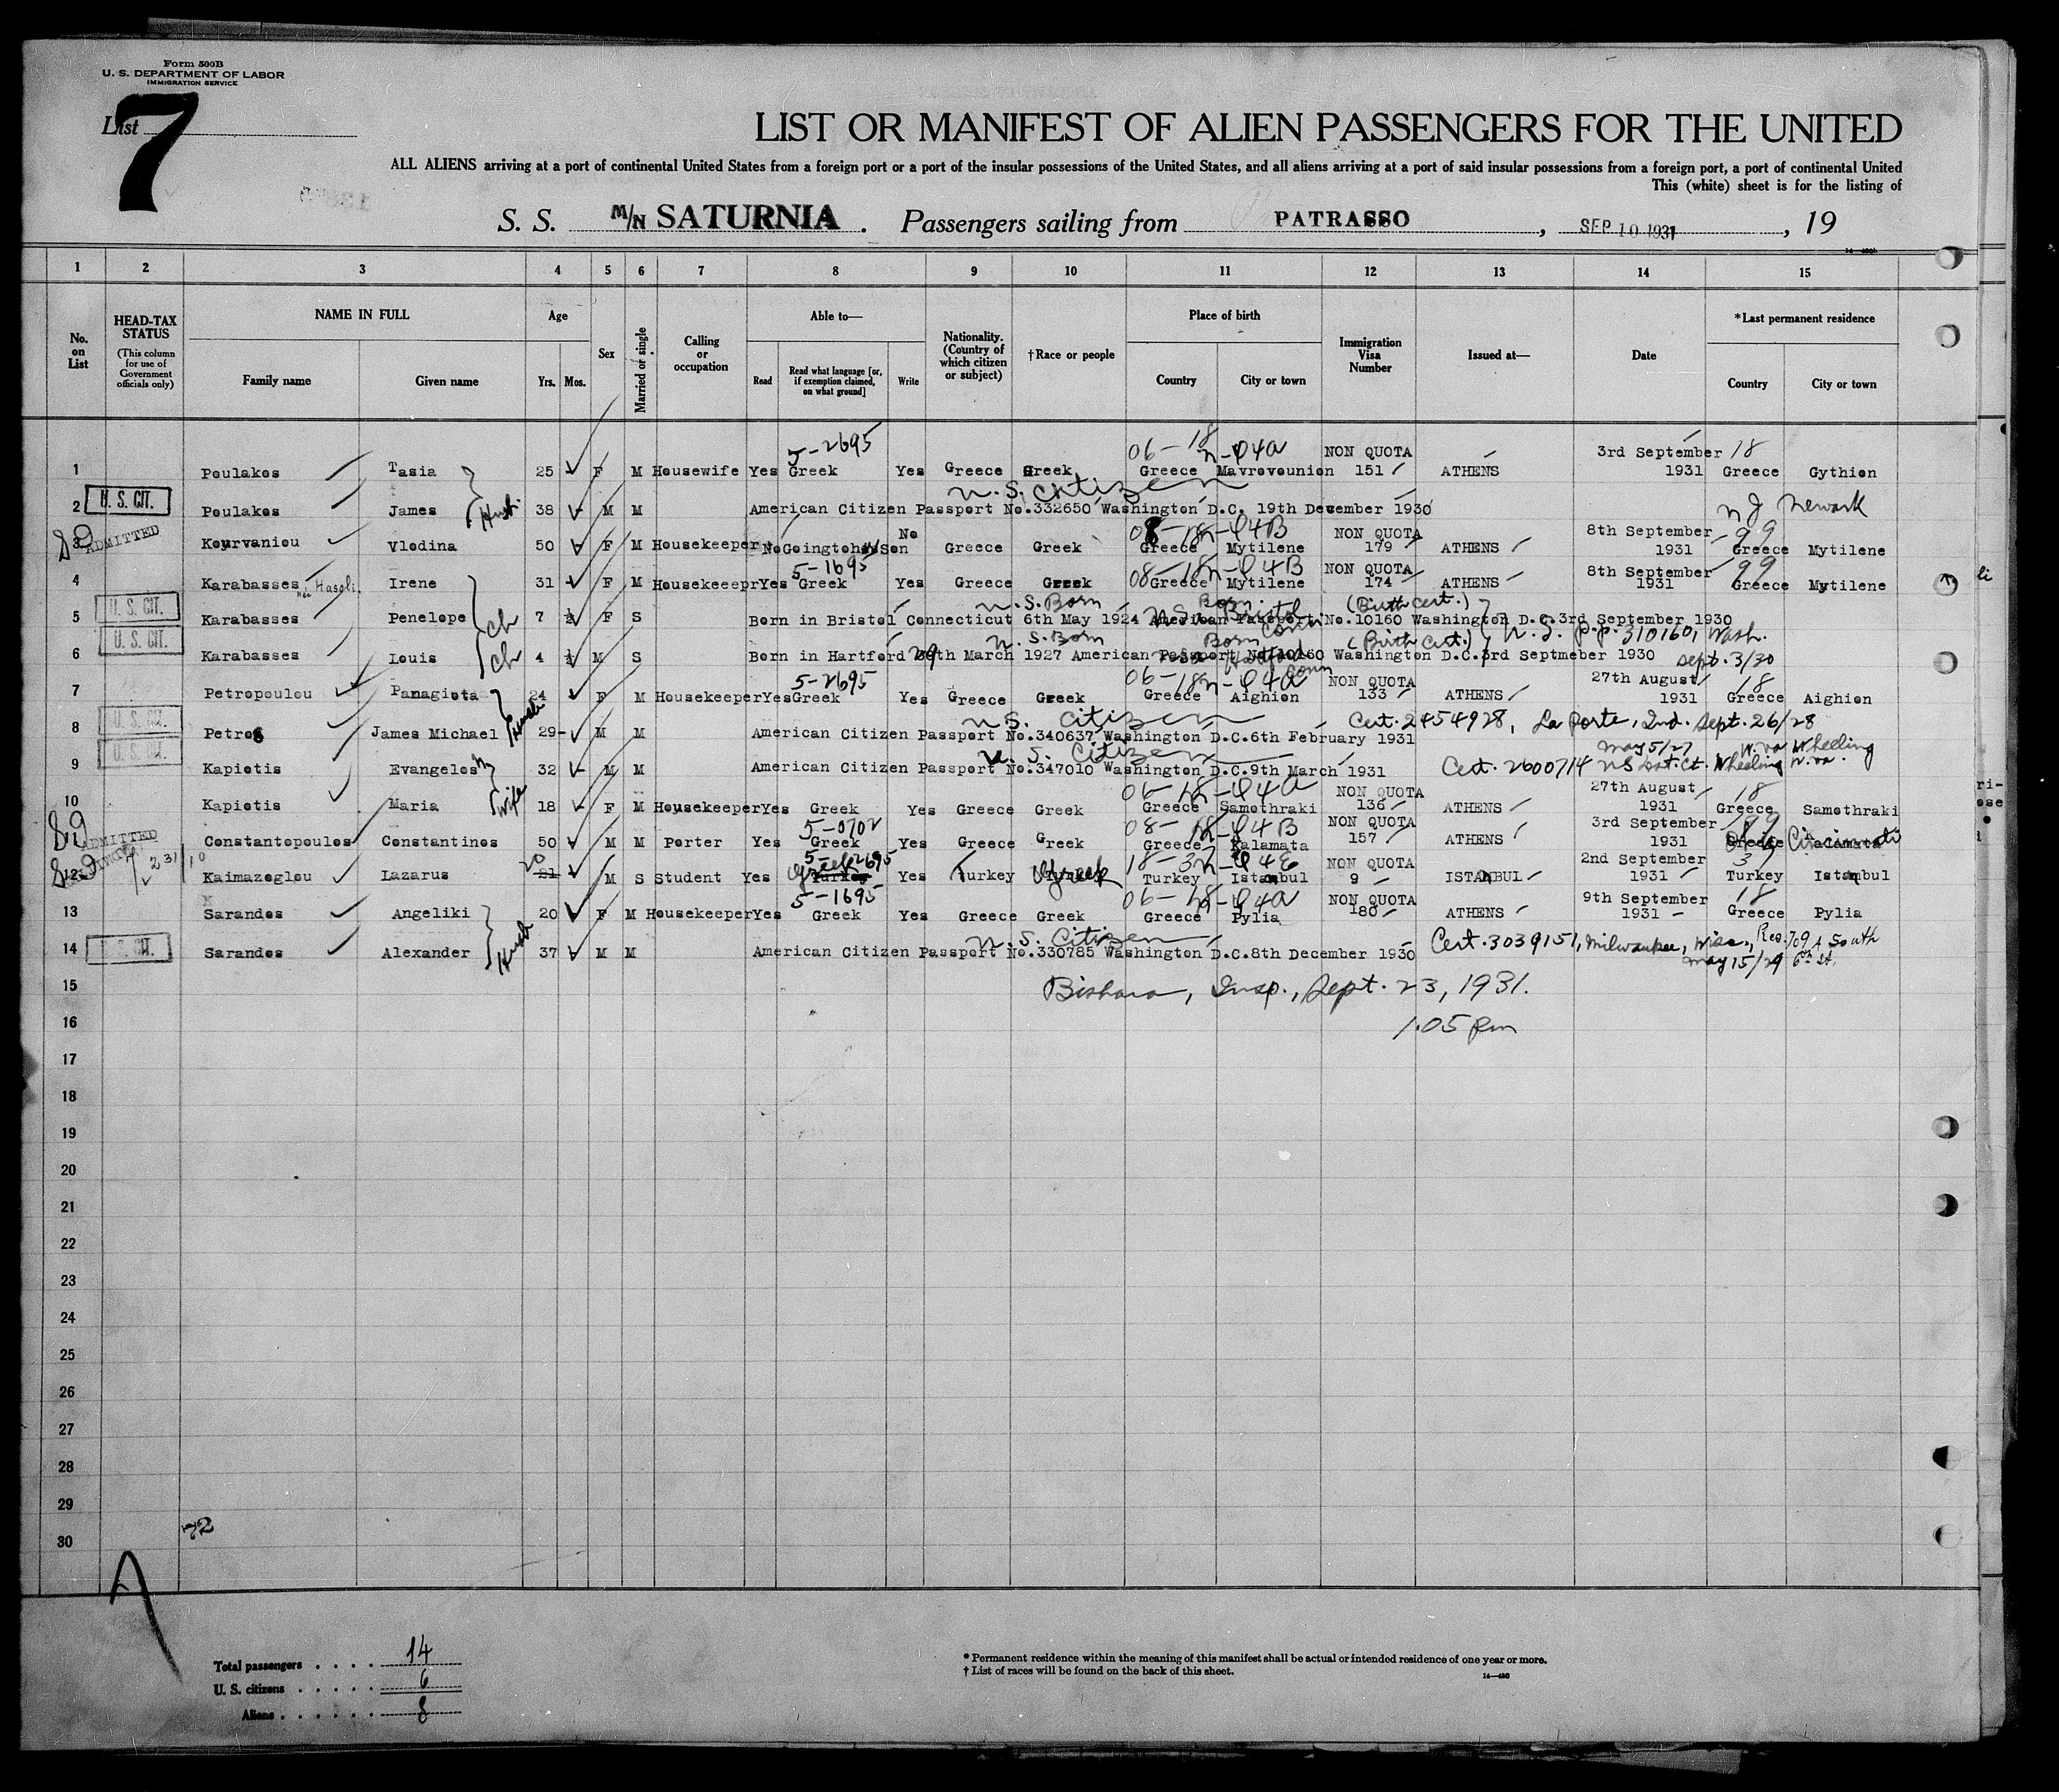 Form 500B
U. S. DEPARTMENT OF LABOR
IMMIGRATION SERVICE
List 7
LIST OR MANIFEST OF ALIEN PASSENGERS FOR THE UNITED
ALL ALIENS arriving at a port of continental United States from a foreign port or a port of the insular possessions of the United States, and all aliens arriving at a port of said insular possessions from a foreign port, a port of continental United
This (white) sheet is for the listing of
S. S. M/N SATURNIA . Passengers sailing from PATRASSO , SEP 10 1931 , 19
1 2 3 4 5 6 7 8 9 10 11 12 13 14 15
No. on List
HEAD-TAX STATUS (This column for use of Government officials only)
NAME IN FULL
Family name Given name
Age
Yrs. Mos.
Sex
Married or single
Calling or occupation
Able to—
Read Read what language [or, if exemption claimed, on what ground] Write
Nationality. (Country of which citizen or subject)
†Race or people
Place of birth
Country City or town
Immigration Visa Number
Issued at—
Date
*Last permanent residence
Country City or town
5-2695 06-18 n-94a NON QUOTA 3rd September 18
1 Poulakos Tasia 25 F M Housewife Yes Greek Yes Greece Greek Greece Mavrovounion 151 ATHENS 1931 Greece Gythion
U. S. Citizen
2 U. S. CIT. Poulakos James Husb. 38 M M American Citizen Passport No.332650 Washington D.C. 19th December 1930 N J Newark
ADMITTED No NON QUOTA 8th September 99
3 Kourvaniou Vlodina 50 F M Housekeeper No Goingtoher Son Greece Greek Greece Mytilene 179 ATHENS 1931 Greece Mytilene
5-1695 NON QUOTA 8th September 99
4 Karabasses Irene 31 F M Housekeeper Yes Greek Yes Greece Greek Greece Mytilene 174 ATHENS 1931 Greece Mytilene
U. S. Born Born (Birth Cert.)
5 U. S. CIT. Karabasses Penelope ch 7 F S Born in Bristol Connecticut 6th May 1924 American Passport No.10160 Washington D.C.3rd September 1930
U. S. Born Born (Birth Cert.) U. S. p.p. 310160, Wash.
6 U. S. CIT. Karabasses Louis ch 4 M S Born in Hartford 29th March 1927 American Passport No.10160 Washington D.C.3rd Septmeber 1930 Sept. 3/30
5-2695 06-18 n-94a NON QUOTA 27th August 18
7 Petropoulou Panagiota 24 F M Housekeeper Yes Greek Yes Greece Greek Greece Aighion 133 ATHENS 1931 Greece Aighion
U. S. Citizen Cert. 2454928, La Porte, Ind. Sept. 26/28
8 U. S. CIT. Petros James Michael Husb. 29 M M American Citizen Passport No.340637 Washington D.C.6th February 1931
U. S. Citizen May 5/27 W. Va Wheeling
9 U. S. CIT. Kapiotis Evangelos 32 M M American Citizen Passport No.347010 Washington D.C.9th March 1931 Cert. 2600714 US Dist. Ct. Wheeling W. Va.
06-18 n-94a NON QUOTA 27th August 18
10 Kapiotis Maria Wife 18 F M Housekeeper Yes Greek Yes Greece Greek Greece Samothraki 136 ATHENS 1931 Greece Samothraki
ADMITTED 5-0702 NON QUOTA 3rd September
11 Constantopoulos Constantinos 50 M M Porter Yes Greek Yes Greece Greek Greece Kalamata 157 ATHENS 1931 Ohio Cincinnati
5-2695 NON QUOTA 2nd September
12 Kaimazoglou Lazarus 20 M S Student Yes Greek Yes Turkey Greek Turkey Istanbul 9 ISTANBUL 1931 Turkey Istanbul
5-1695 06-18 n-94a NON QUOTA 9th September 18
13 Sarandos Angeliki 20 F M Housekeeper Yes Greek Yes Greece Greek Greece Pylia 180 ATHENS 1931 Greece Pylia
U. S. Citizen
14 U. S. CIT. Sarandos Alexander Husb 37 M M American Citizen Passport No.330785 Washington D.C.8th December 1930 Cert. 3039151, Milwaukee, Wisc., Res. 709 A South
May 15/29 6th St.
15 Bishara, Insp., Sept. 23, 1931.
16 1.05 pm
17
18
19
20
21
22
23
24
25
26
27
28
29
30
72
Total passengers . . . . 14
U. S. citizens . . . . . 6
Aliens . . . . . . 8
* Permanent residence within the meaning of this manifest shall be actual or intended residence of one year or more.
† List of races will be found on the back of this sheet.
14—430